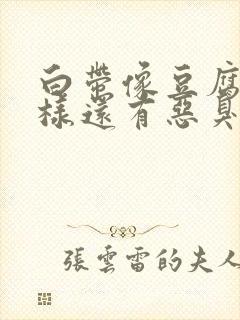 白帶像豆腐
樣還有惡臭
張雲雷的夫人